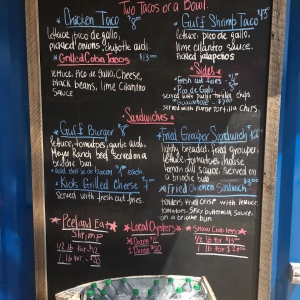 Two Tacos or a Bowl.
Chicken Taco
lettuce, pico de gallo,
pickled onions, chipotle aioli
Grilled Cobia Tacos $13.00
lettuce, Pico de Gallo, Cheese,
black beans, lime cilantro
sauce
Gulf Shrimp Taco $13
lettuce, pico de gallo,
lime cilantro sauce,
Pickled jalapeños
Sides
Fresh cut fries
Pico de Gallo
served with tortilla chips
Guacamole
served with tortilla chips.
Sandwiches
Gulf Burger
lettuce, tomatoes, garlic aioli,
Meyer Ranch beef served on a
brioche bun
add bacon
Kids Grilled Cheese
served with fresh cut fries.
Fried Grouper Sandwich
lightly breaded, fried grouper,
lettuce, tomatoes, house
lemon aili sauce, served
on a brioche bun
Fried Chicken Sandwich
tenders fried crisp with lettuce,
tomatoes, spicy buttermilk sauce,
on a brioche bun
Peel and Eat
Shrimp
1/2 lb for $12
1 lb for $20
Local Oysters
1/2 Dozen
1 Dozen
Snow Crab Legs
1/2 lb for
1 lb for